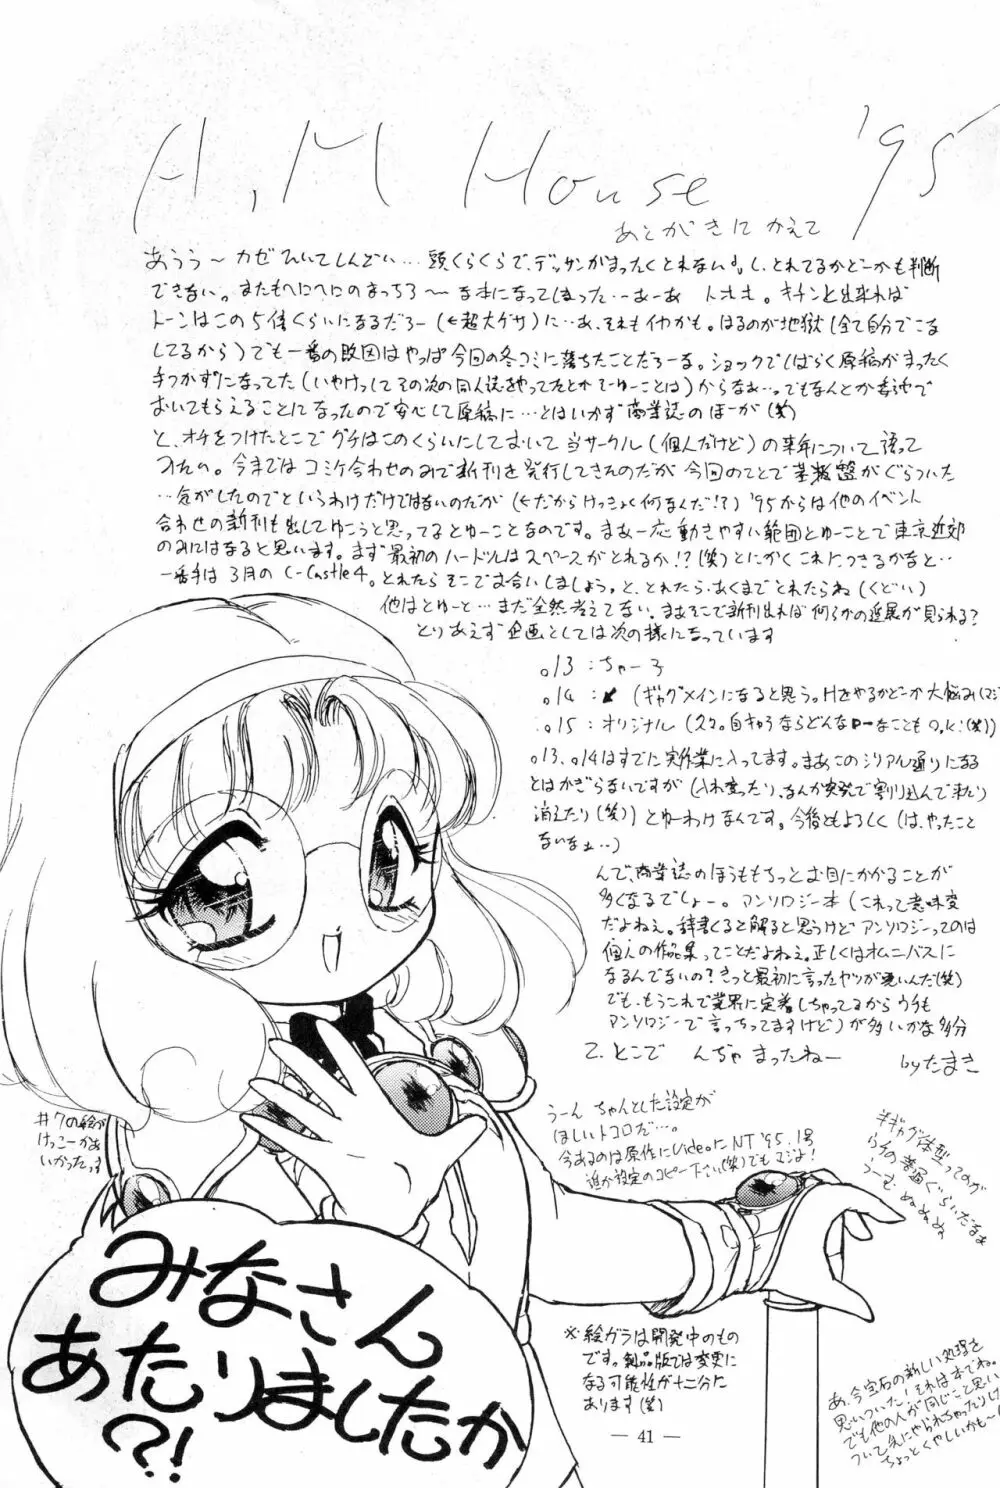 A,M House '95
あとがきにかえて
あうう〜カゼひいてしんどい…頭くらくらで、デッサンがまったくとれない。し、とれてるかどーかも判断
できない。またもへにへにのまっちろ〜な本になってしまった…あーあ トホホ。キチンと出来れば
トーンはこの5倍くらいになるだろー(←超大ゲサ)に…あ、それもイヤかも。はるのが地獄(全て自分でこな
してるから)でも一番の敗因はやっぱ今回の冬コミに落ちたことだろーな。ショックでしばらく原稿がまったく
手つかずになってた(いやけっしてその次の同人誌をやってたとかでゆーことは)からなぁ…っでもなんとか委託で
おいてもらえることになったので安心して原稿に…とはいかず商業誌のほーが(笑)
と、オチをつけたとこでグチはこのくらいにしておいて当サークル(個人だけど)の来年について語って
みたへ。今まではコミケ合わせのみで新刊を発行してきたのだが今回のことで基盤がぐらついた
…気がしたのでというわけだけではないのだが(←だからけっきょく何なんだ!?)'95からは他のイベント
合わせの新刊も出してゆこうと思ってるとゆーことなのです。まあ一応動きやすい範囲とゆーことで東京近郊
のみにはなると思います。まず最初のハードルはスペースがとれるか!?(笑)とにかくこれにつきるかなと…
一番手は3月のC-Castle4。とれたらそこでお会いしましょう。と、とれたら、あくまでとれたらね(くどい)
他はとゆーと…まだ全然考えてない。まぁそこで新刊出れば何らかの進展が見られる?
とりあえず企画としては次の様になっています
o13:ちゃ一子
o14: (ギャグメインになると思う。Hをやるかどーか大悩み(マジ
o15:オリジナル(スマ。自キャラならどんな なこともO.K.(笑))
o13、o14はすでに実作業に入ってます。まあこのシリアル通りになる
とはかぎらないですが(入れ変ったり、なんか突発で割り込んで来たり
消えたり(笑))とゆーわけなんです。今後ともよろしく(は、やったこと
ないなぁ…)
んで、商業誌のほうももちっとお目にかかることが
多くなるでしょー。アンソロジー本(これって意味変
だよねぇ。辞書くると解ると思うけどアンソロジーってのは
個人の作品集ってことだよねぇ。正しくはオムニバスに
なるんでないの?きっと最初に言ったヤツが悪いんだ(笑)
でも、もうこれで業界に定着しちゃってるからウチも
アンソロジーで言っちってますけど)が多いかな多分
て、とこで んぢゃ まったねー byたまき
#7の絵が
けっこーかあ
いかったっす
うーん ちゃんとした設定が
ほしいトコロだ…。
今あるのは原作にVideoにNT'95.1号
誰か設定のコピー下さい(笑)でもマジよ!
#ギャグ体型ってのが
らその普通ぐらいだなぁ
うーむ ぬぬぬぬ
みなさん
あたりましたか
?!
※絵ガラは開発中のもの
です。製品版では変更に
なる可能性が十二分に
あります(笑)
あ、今宝石の新しい処理を
思いついた!それは本でね。
でも他の人が同じこと思い
ついて先にやられちゃったりけ
ちょっとくやしいかも〜(
— 41 —